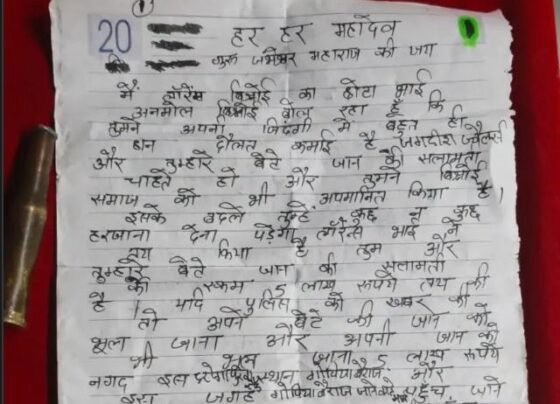 1
20
हर हर महादेव
गुरु जम्भेश्वर महाराज की जय
मैं लॉरेंस बिश्नोई का छोटा भाई
अनमोल बिश्नोई बोल रहा हूँ कि
तुमने अपनी जिंदगी में बहुत ही
धन दौलत कमाई है जगदीश ज्वैलर्स
और तुम्हारे बेटे जान की सलामती
चाहते हो और तुमने बिश्नोई
समाज को भी अपमानित किया है।
इसके बदले तुम्हें कुछ न कुछ
हरजाना देना पड़ेगा लॉरेंस भाई ने
तय किया है तुम और
तुम्हारे बेटे जान की सलामती
की रकम 5 लाख रूपये तय की
है। यदि पुलिस को खबर की
तो अपने बेटे की जान को
भूल जाना और अपनी जान को
भी भूल जाना 5 लाख रूपये
नगद इस और
इस जगह पहुंच जाने